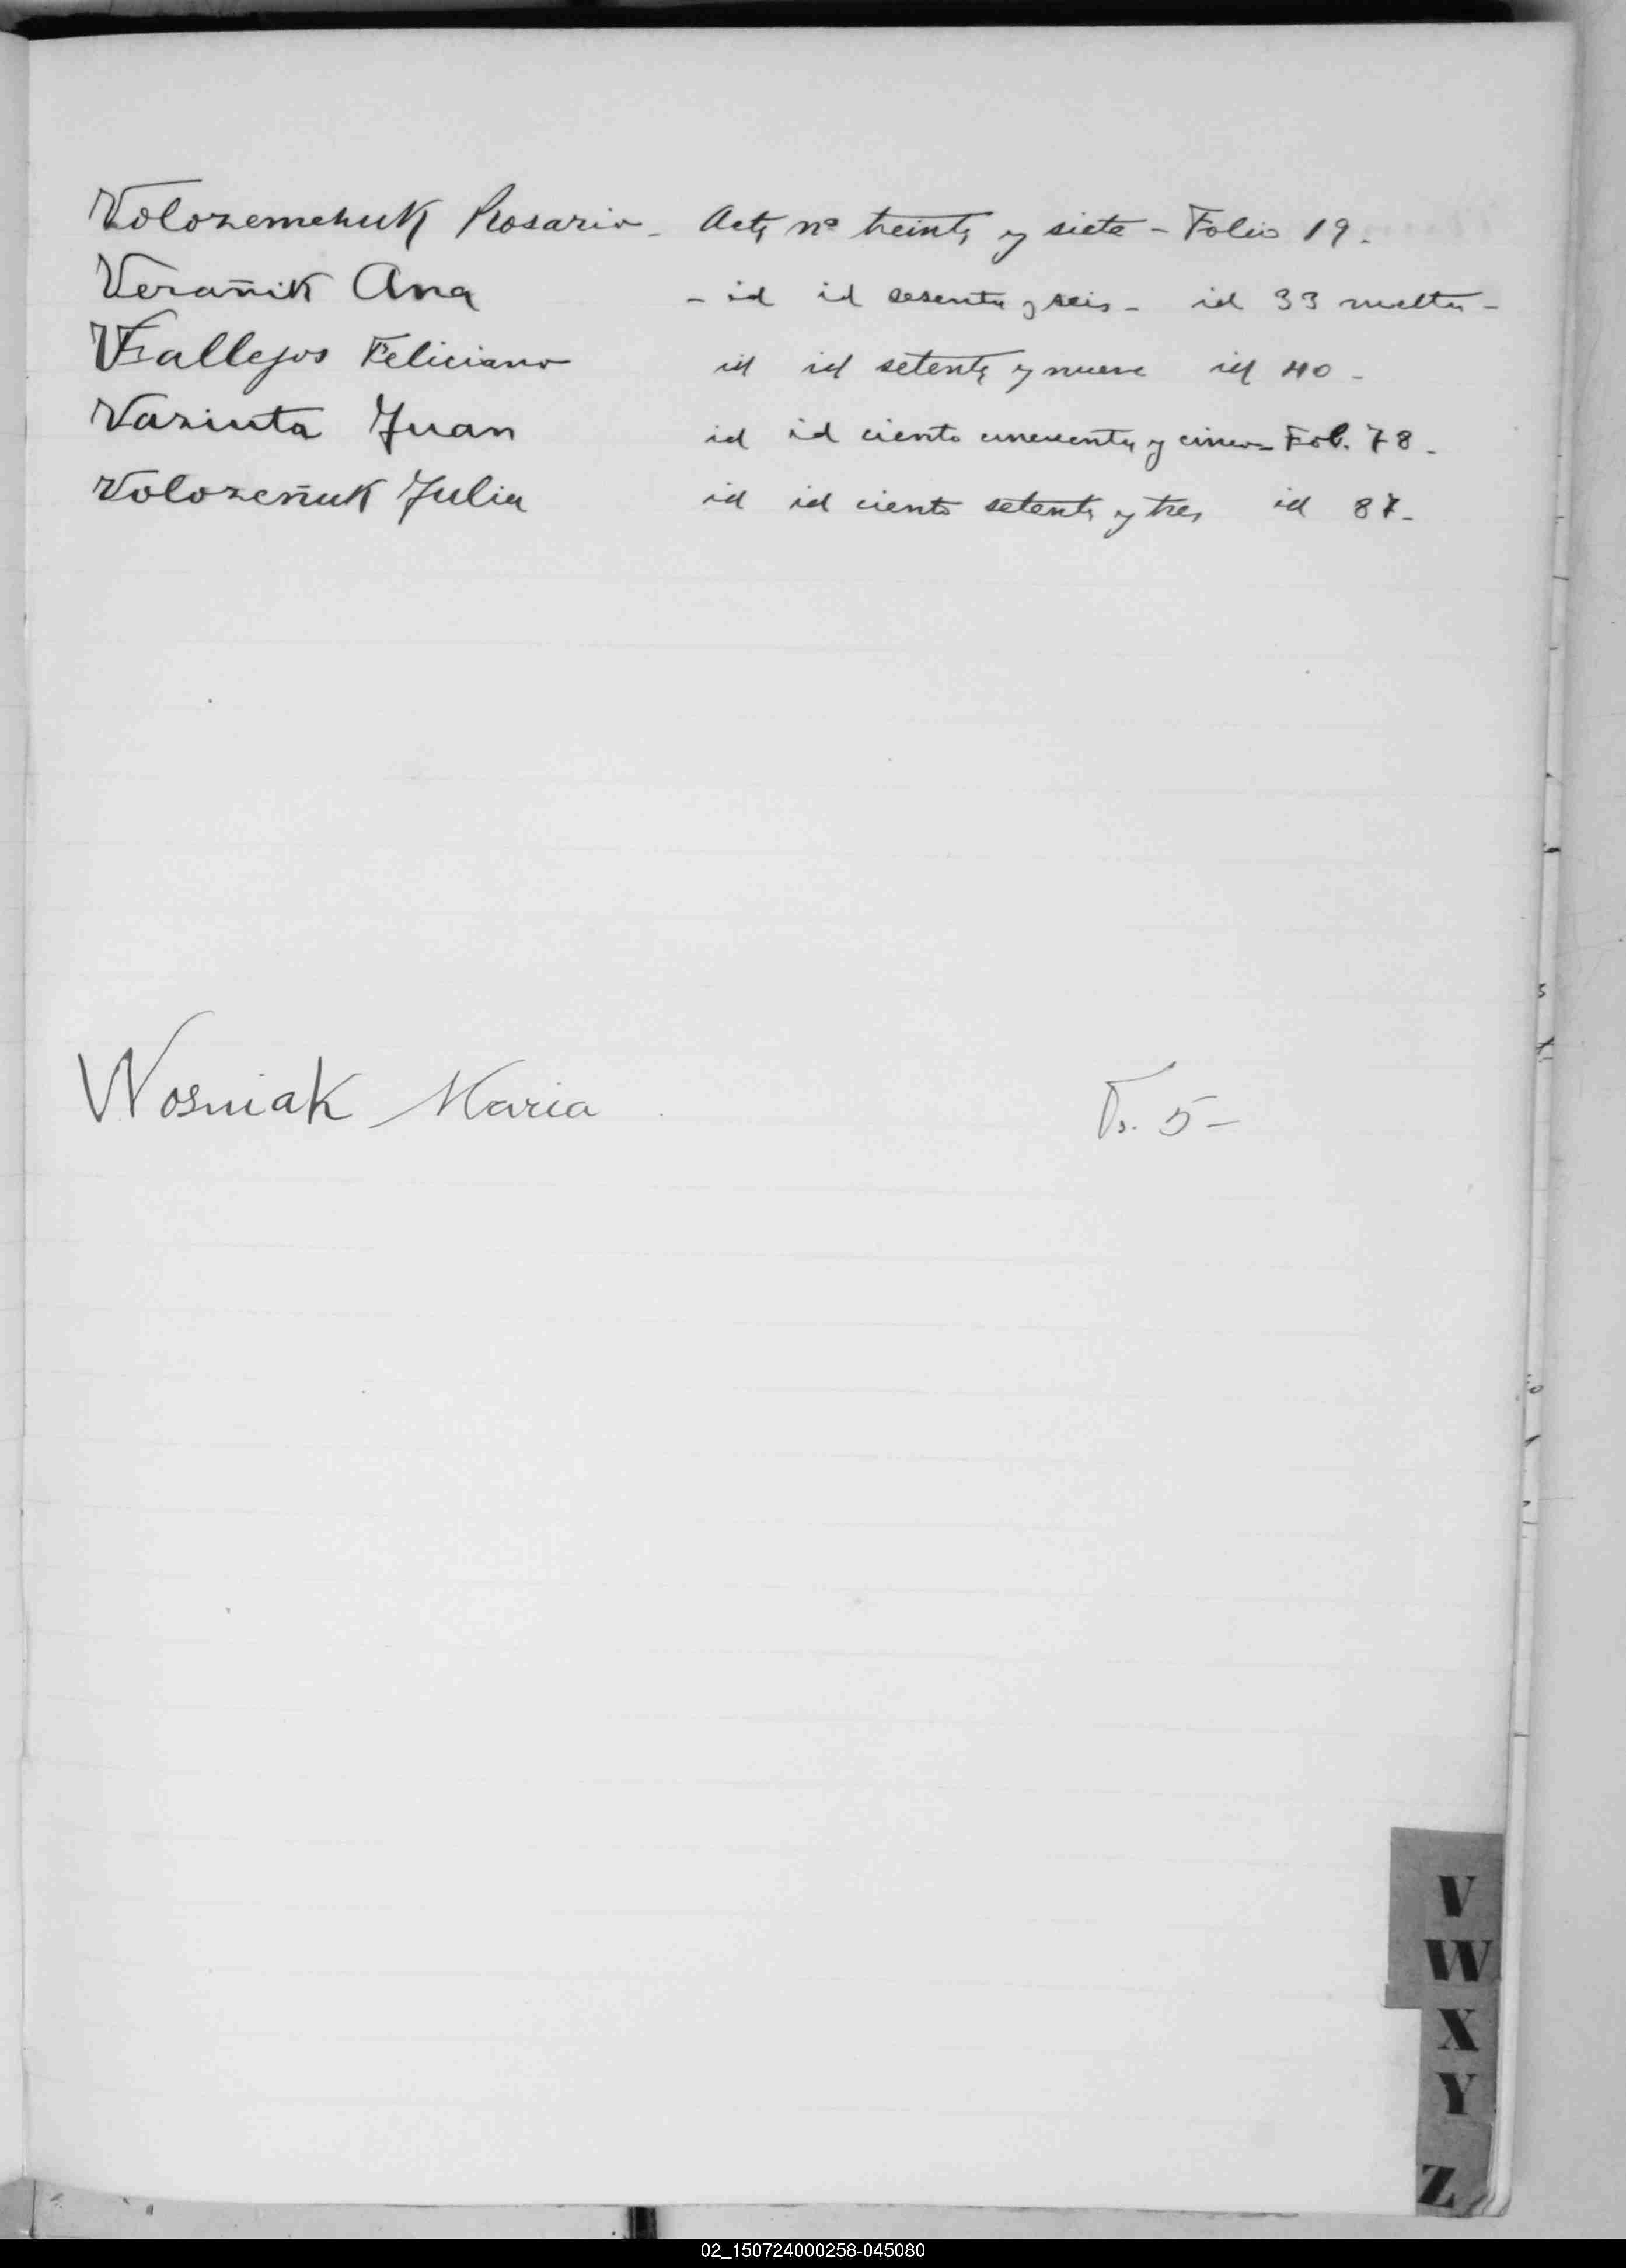 Volozemchuk Rosario - Acta nº treinta y siete - Folio 19.
Verañik Ana - id id sesenta y seis - id 33 vuelta -
Vallejos Feliciano id id setenta y nueve id 40 -
Vaziuta Juan id id ciento cincuenta y cinco - Fol. 78 -
Volozeñuk Julia id id ciento setenta y tres id 87 -
Wosniak Maria 5 -
V
W
X
Y
Z
02_150724000258-045080